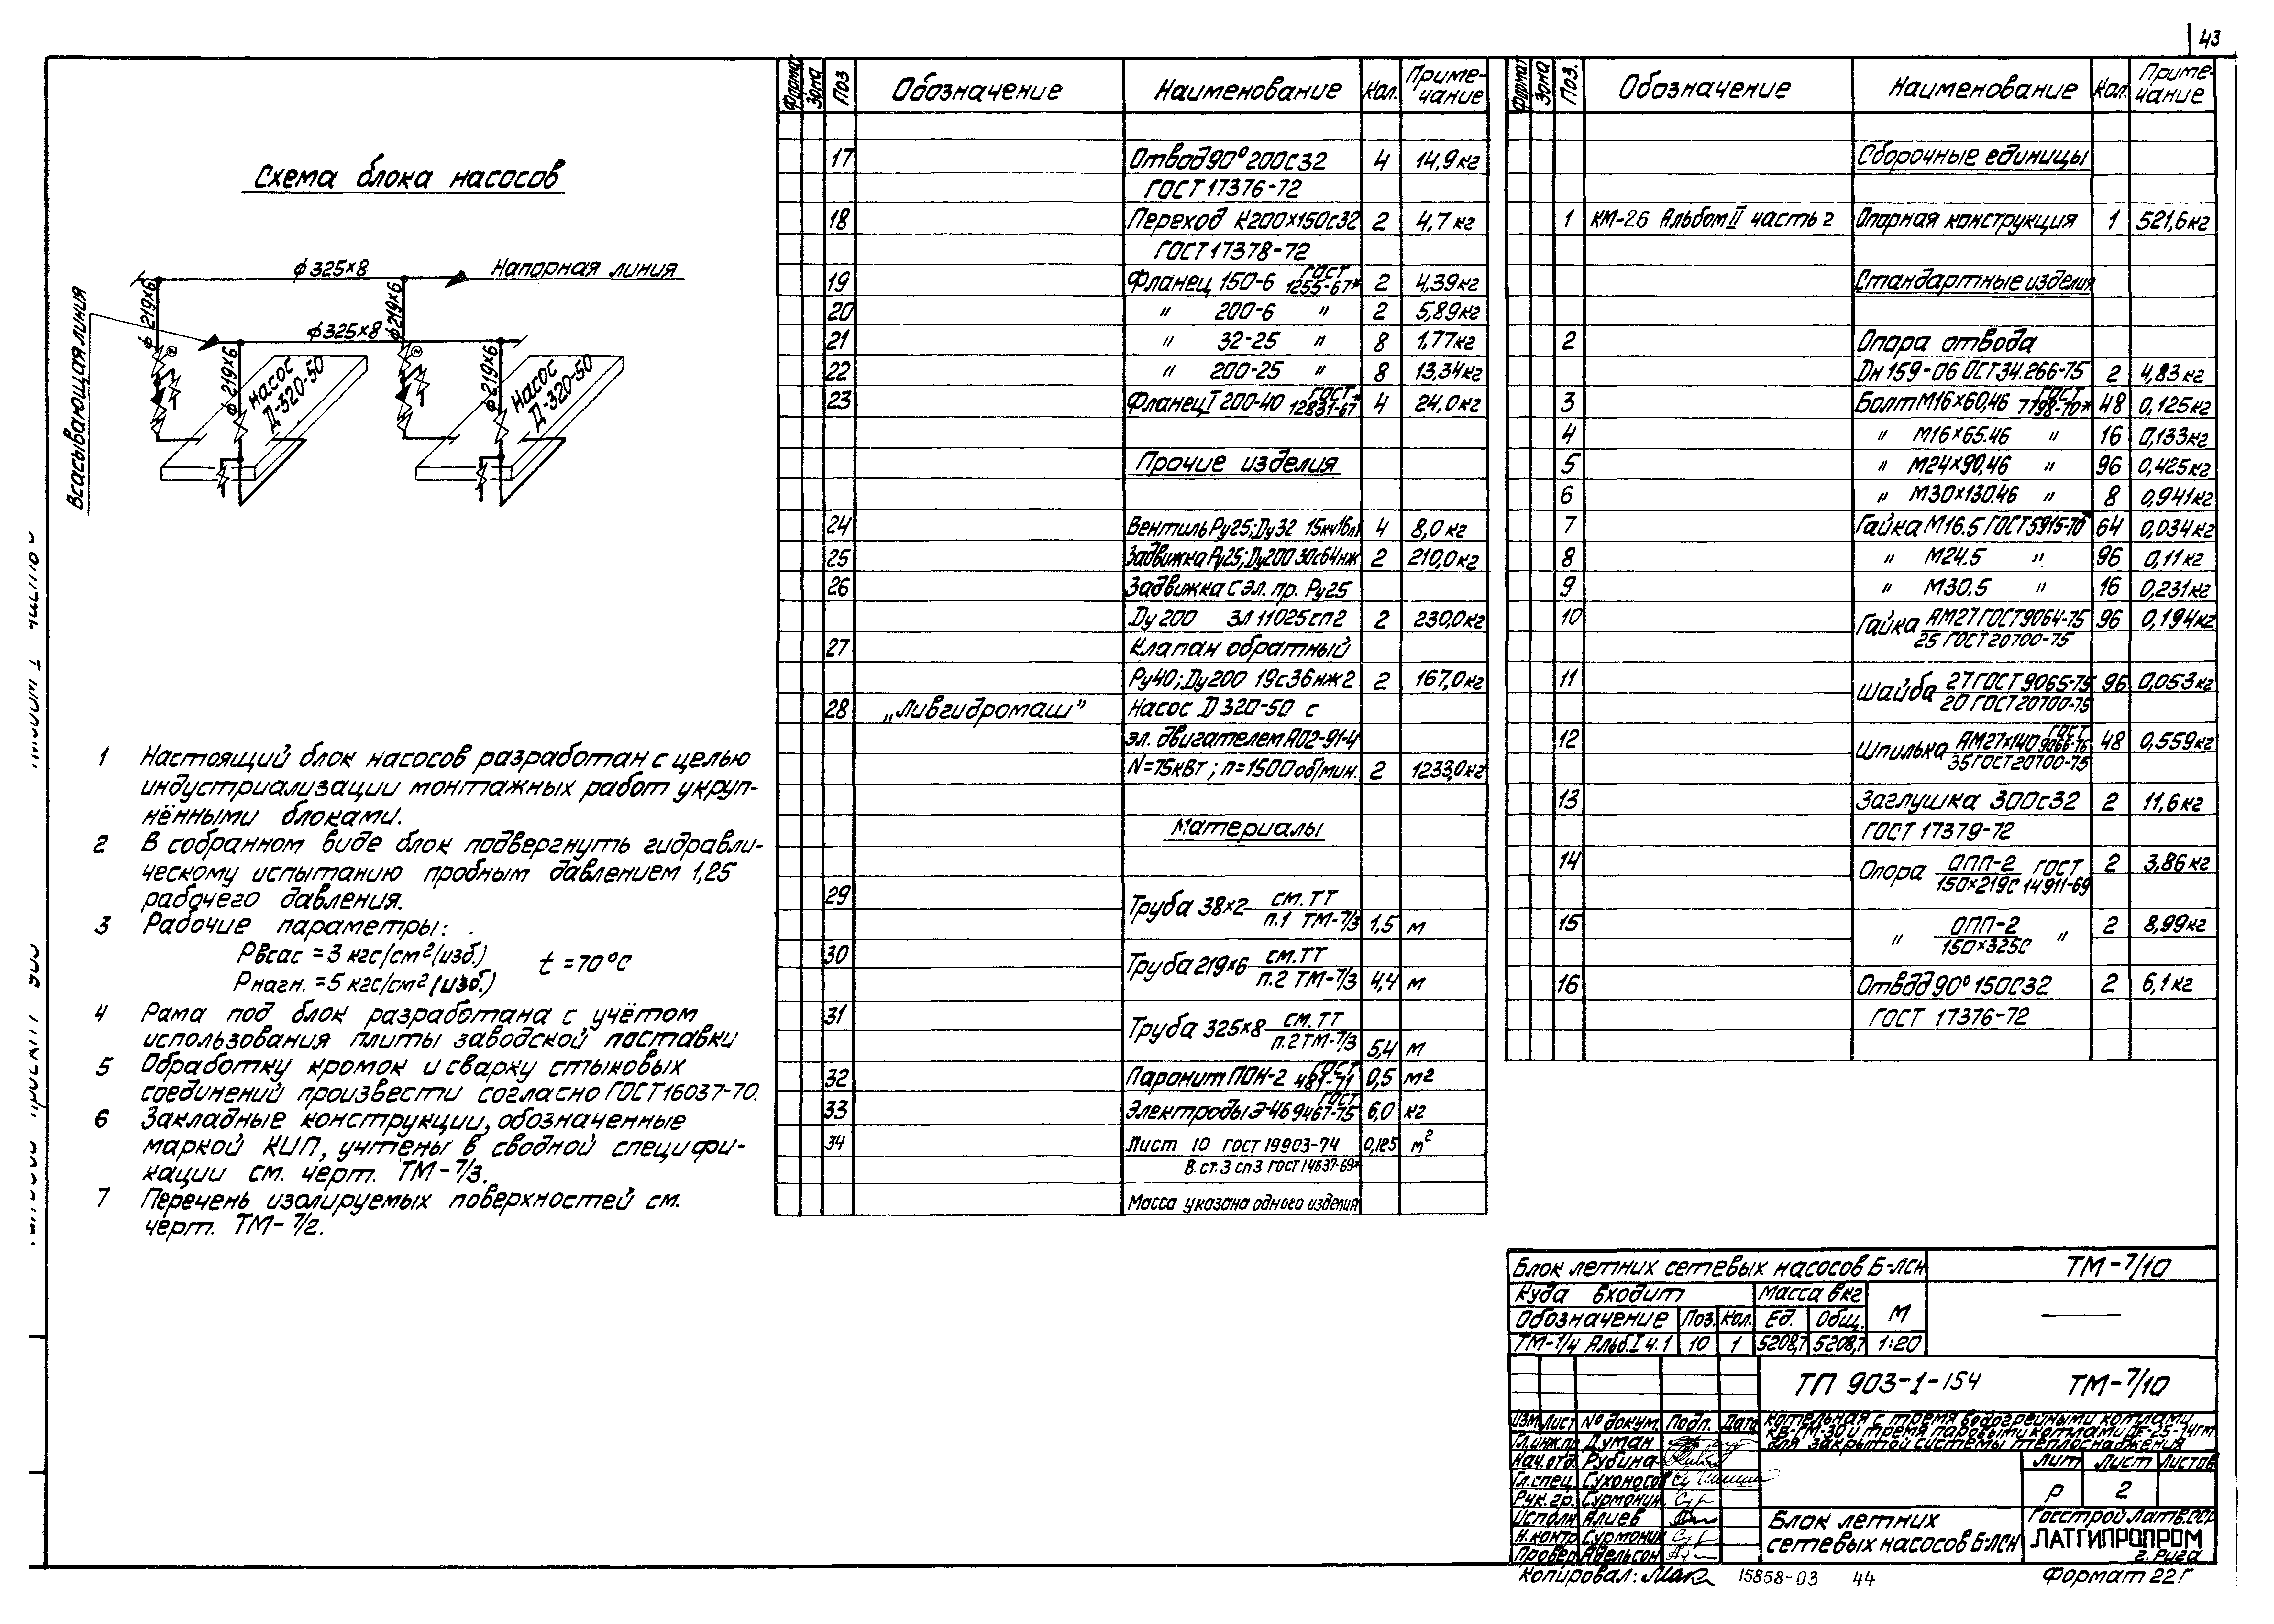 43
Схема блока насосов
ф325×8
Напорная линия
ф219×6
ф219×6
ф325×8
Всасывающая линия
ф219×6
ф219×6
Насос
Д-320-50
Насос
Д-320-50
1 Настоящий блок насосов разработан с целью
индустриализации монтажных работ укруп-
нёнными блоками.
2 В собранном виде блок подвергнуть гидравли-
ческому испытанию пробным давлением 1,25
рабочего давления.
3 Рабочие параметры:
Рвсас = 3 кгс/см² (изб.)
t = 70°С
Рнагн. = 5 кгс/см² (изб.)
4 Рама под блок разработана с учётом
использования плиты заводской поставки
5 Обработку кромок и сварку стыковых
соединений произвести согласно ГОСТ 16037-70.
6 Закладные конструкции, обозначенные
маркой КИП, учтены в сводной специфи-
кации см. черт. ТМ-7/3.
7 Перечень изолируемых поверхностей см.
черт. ТМ-7/2.
Формат Зона Поз Обозначение Наименование Кол. Приме-
чание
17 Отвод 90° 200С32 4 14,9кг
ГОСТ 17376-72
18 Переход К200×150с32 2 4,7 кг
ГОСТ 17378-72
19 Фланец 150-6 ГОСТ 1255-67* 2 4,39кг
20 " 200-6 " 2 5,89кг
21 " 32-25 " 8 1,77кг
22 " 200-25 " 8 13,34кг
23 Фланец I 200-40 ГОСТ 12831-67* 4 24,0кг
Прочие изделия
24 Вентиль Ру25; Ду32 15кч16п1 4 8,0 кг
25 Задвижка Ру25; Ду200 30с64нж 2 210,0кг
26 Задвижка с эл. пр. Ру25
Ду 200 3л 11025сп2 2 230,0кг
27 Клапан обратный
Ру40; Ду200 19с36нж2 2 167,0кг
28 „Ливгидромаш” Насос Д 320-50 с
эл. двигателем А02-91-4
N=75кВт; n=1500об/мин. 2 1233,0кг
Материалы
29 Труба 38×2 см. ТТ
п.1 ТМ-7/3 1,5 м
30 Труба 219×6 см. ТТ
п.2 ТМ-7/3 4,4 м
31 Труба 325×8 см. ТТ
п.2 ТМ-7/3 5,4 м
32 Паронит ПОН-2 ГОСТ 481-71 0,5 м2
33 Электроды Э-46 ГОСТ 9467-75 6,0 кг
34 Лист 10 ГОСТ 19903-74 0,125 м²
В. ст. 3 сп3 ГОСТ 14637-69*
Масса указана одного изделия
Формат Зона Поз. Обозначение Наименование Кол. Приме-
чание
Сборочные единицы
1 КМ-26 Альбом II часть 2 Опорная конструкция 1 521,6кг
Стандартные изделия
2 Опора отвода
Dн 159-06 ОСТ34.266-75 2 4,83 кг
3 Болт М16×60.46 ГОСТ 7798-70* 48 0,125кг
4 " М16×65.46 " 16 0,133кг
5 " М24×90.46 " 96 0,425кг
6 " М30×130.46 " 8 0,941кг
7 Гайка М16.5 ГОСТ5915-70* 64 0,034кг
8 " М24.5 " 96 0,11кг
9 " М30.5 " 16 0,231кг
10 Гайка АМ27 ГОСТ9064-75 96 0,194кг
25 ГОСТ 20700-75
11 Шайба 27 ГОСТ 9065-75 96 0,053кг
20 ГОСТ 20700-75
12 Шпилька АМ27×140 ГОСТ 9066-76 48 0,559кг
35 ГОСТ 20700-75
13 Заглушка 300с32 2 11,6 кг
ГОСТ 17379-72
14 Опора ОПП-2 ГОСТ 2 3,86 кг
150×219С 14911-69
15 " ОПП-2 " 2 8,99кг
150×325С
16 Отвод 90° 150С32 2 6,1 кг
ГОСТ 17376-72
Блок летних сетевых насосов Б-ЛСН ТМ-7/10
Куда входит Масса в кг М
Обозначение Поз. Кол. Ед. Общ.
ТМ-1/4 Альб. I ч.1 10 1 5208,7 5208,7 1:20
ТП 903-1-154 ТМ-7/10
Изм Лист № докум. Подп. Дата
Котельная с тремя водогрейными котлами
КВ-ГМ-30 и тремя паровыми котлами ДЕ-25-14ГМ
для закрытой системы теплоснабжения
Гл.инж.пр Думан
Нач.отд. Рубина
Гл.спец. Сухоносов
Рук.гр. Сурмонин
Исполн Алиев
Н.контр Сурмонин
Провер Адельсон
Лит Лист Листов
Р 2
Блок летних
сетевых насосов Б-ЛСН
Госстрой Латв.ССР
ЛАТГИПРОПРОМ
г. Рига
Копировал: 15858-03 44 Формат 22Г